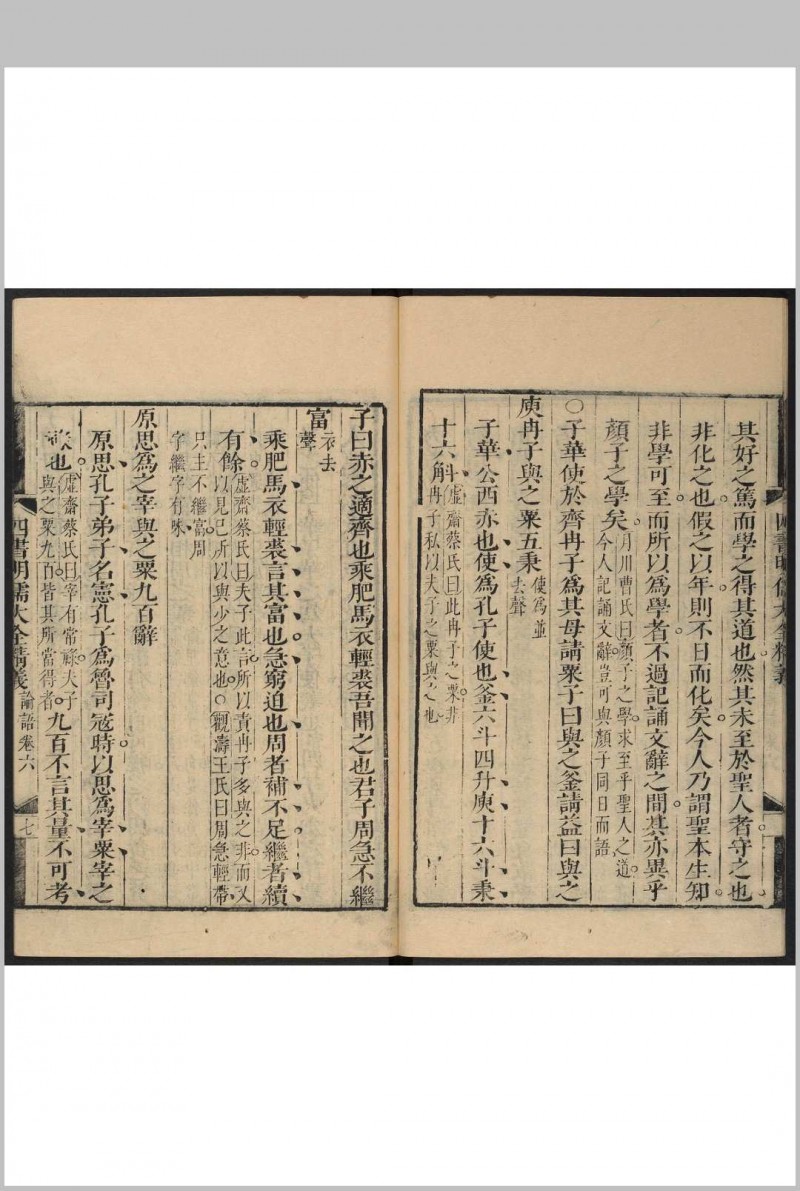 其好之篤而學之得其道也然其未至於聖人者守之也
非化之也假之以年則不日而化矣今人乃謂聖本生知
非學可至而所以為學者不過記誦文辭之間其亦異乎
顏子之學矣月川曹氏曰顏子之學求至乎聖人之道
今人記誦文辭豈可與顏子同日而語
○子華使於齊冉子為其母請粟子曰與之釜請益曰與之
庾冉子與之粟五秉使為並
去聲
子華公西赤也使為孔子使也釜六斗四升庾十六斗秉
十六斛虛齋蔡氏曰此冉子之粟非
冉子私以夫子之粟與之也
四書明儒大全精義
子曰赤之適齊也乘肥馬衣輕裘吾聞之也君子周急不繼
富衣去
聲
乘肥馬衣輕裘言其富也急窮迫也周者補不足繼者續
有餘虛齋蔡氏曰夫子此言所以責冉子多與之非而又
以見己所以與少之意也○觀濤王氏曰周急輕帶
只主不繼富周
字繼字有味
原思為之宰與之粟九百辭
原思孔子弟子名憲孔子為魯司寇時以思為宰粟宰之
祿也虛齋蔡氏曰宰有常祿夫子
與之粟九百皆其所當得者九百不言其量不可考
四書明儒大全精義 論語卷六 七